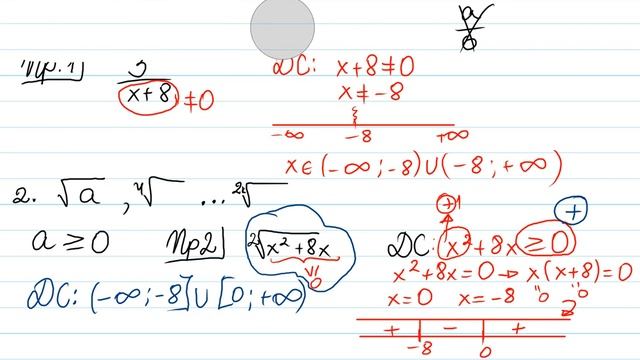 a/0
Пр.1) 3/(x+8) ≠0
ДС: x+8≠0
x≠-8
-∞ -8 +∞
x∈(-∞;-8)∪(-8;+∞)
2. √a , ⁴√ ... ²ⁿ√
a≥0 Пр2) √(x²+8x) ≥0
ДС: (-∞;-8]∪[0;+∞)
+1 +
ДС: x²+8x≥0
x²+8x=0 → x(x+8)=0
x=0 x=-8 "0 "0
+ - +
-8 0